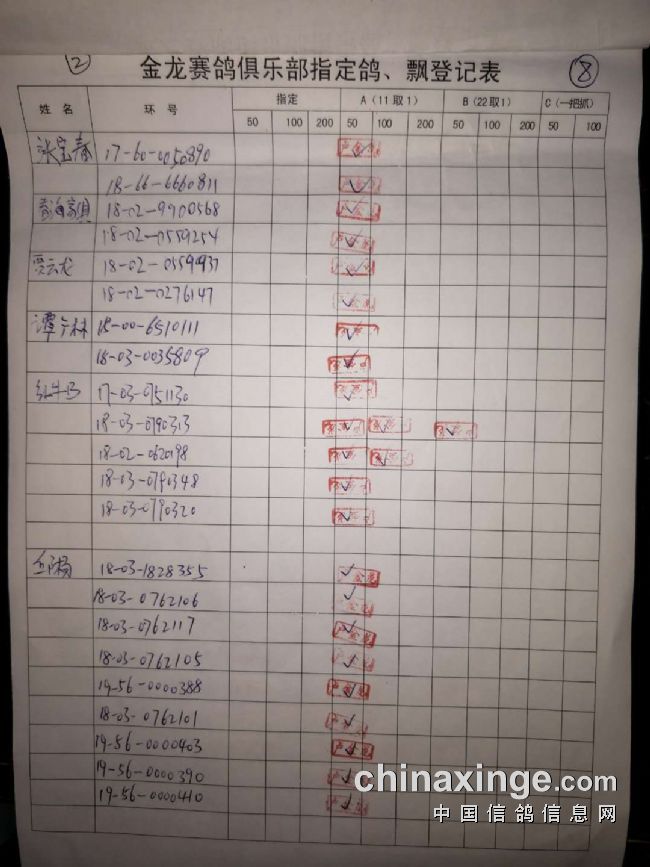 ② ⑧
金龙赛鸽俱乐部指定鸽、飘登记表
姓名 环号 指定 A（11取1） B（22取1） C（一把抓）
50 100 200 50 100 200 50 100 200 50 100
17-60-0050890 ✓
18-66-6660811 ✓
18-02-9900568 ✓
18-02-0559254 ✓
贾云龙 18-02-0559937 ✓
18-02-0276147 ✓
谭广林 18-00-6510111 ✓
18-03-0035809 ✓
17-03-0751130 ✓
18-03-0790313 ✓ ✓ ✓
18-02-0620198 ✓ ✓
18-03-0790348 ✓
18-03-0790320 ✓
18-03-1828355 ✓
18-03-0762106 ✓
18-03-0762117 ✓
18-03-0762105 ✓
19-56-0000388 ✓
18-03-0762101 ✓
19-56-0000403 ✓
19-56-0000390 ✓
19-56-0000410 ✓
chinaxinge.com
中国信鸽信息网